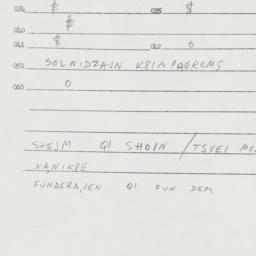 034 $ 035 $
040 $
041 $ 042 0
050 SOLNIDZAJN KRIN PAGROMS
060 0
STEJM QI SHOIN / TSVEI
XA,NIKPE
FUNDERA,IEN QI FUN DEM